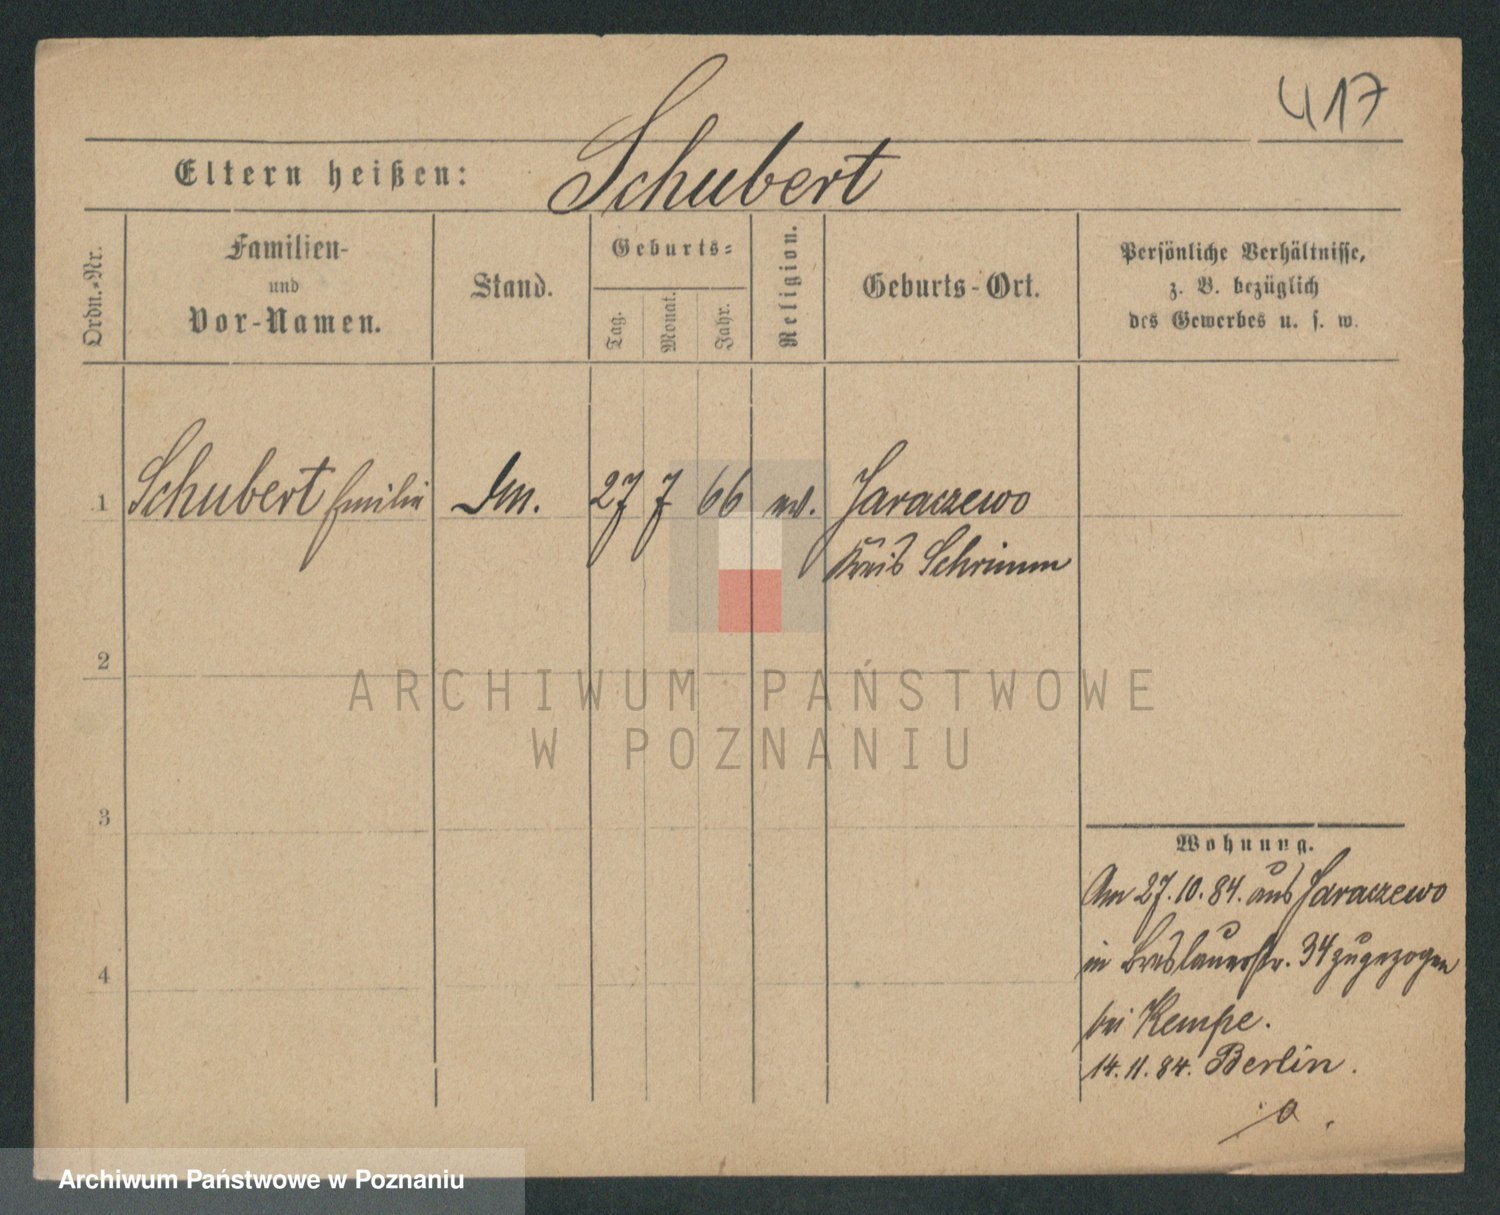 417
Eltern heißen: Schubert
Ordn.-Nr.
Familien-
und
Vor-Namen.
Stand.
Geburts-
Tag.
Monat.
Jahr.
Religion.
Geburts-Ort.
Persönliche Verhältnisse,
z. B. bezüglich
des Gewerbes u. s. w.
1 Schubert Emilie 27 7 66 ev. Jaraczewo
Kreis Schrimm
2
ARCHIWUM PAŃSTWOWE
W POZNANIU
3
Wohnung.
Am 27.10.84. aus Jaraczewo
in Breslauerstr. 34 zugezogen
4
bei Kempe.
14.11.84. Berlin.
Archiwum Państwowe w Poznaniu